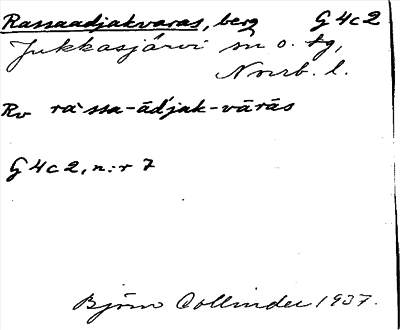 Rassaadjakvaras, berg G4c2
Jukkasjärvi sn o. tg,
Norrb. l.
Rv ràssa-ād́jak-vārás
G4c2, n:r 7
Björn Collinder 1937.